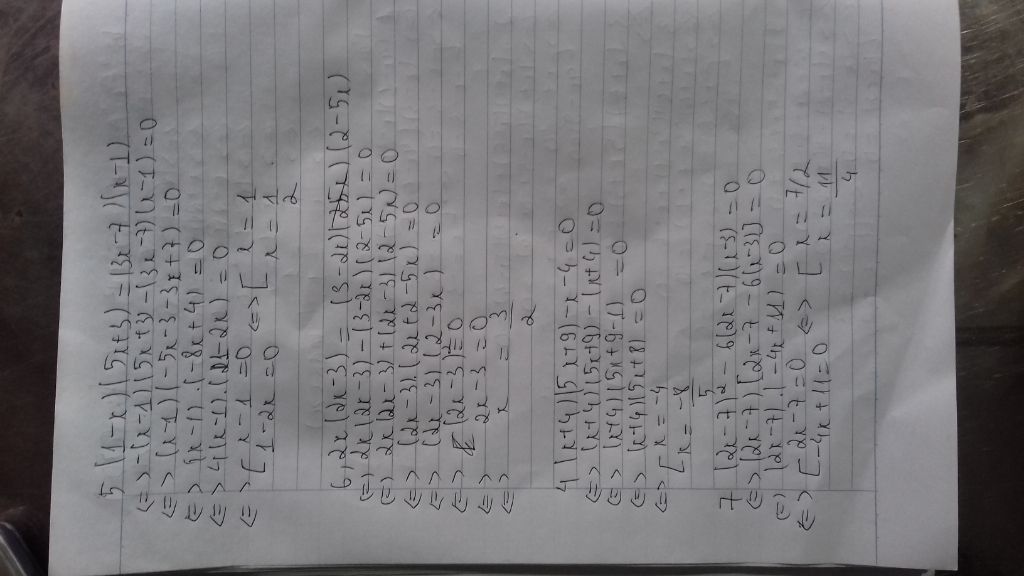 5, (1-x)(5x+3) = (3x-7)(x-1)
<=> -(x-1)(5x+3) - (3x-7)(x-1) = 0
<=> (x-1)(-5x-3-3x+7) = 0
<=> (x-1).(-8x+4) = 0
<=> 4(x-1).(1-2x) = 0
<=> [ x-1 = 0 <=> [ x = 1
1-2x = 0 x = 1/2
6, 2x(2x-3) = (3-2x)(2-5x)
<=> 2x(2x-3) - (3-2x)(2-5x) = 0
<=> 2x(2x-3) + (2x-3)(2-5x) = 0
<=> (2x-3)(2x+2-5x) = 0
<=> (2x-3)(2-3x) = 0
<=> (2x-3) = 0
<=> 2x-3 = 0
<=> x = 3/2
4 (x+4)(5x+9)-x-4 = 0
<=> (x+4)(5x+9) - (x+4) = 0
<=> (x+4)(5x+9-1) = 0
<=> (x+4)(5x+8) = 0
<=> [ x = -4
x = -8/5
7 (2x-7)² - 6(2x-7)(x-3) = 0
<=> (2x-7)[2x-7-6(x-3)] = 0
<=> (2x-7).(-4x+11) = 0
<=> [ 2x-7 = 0 <=> [ x = 7/2
-4x+11 = 0 x = 11/4